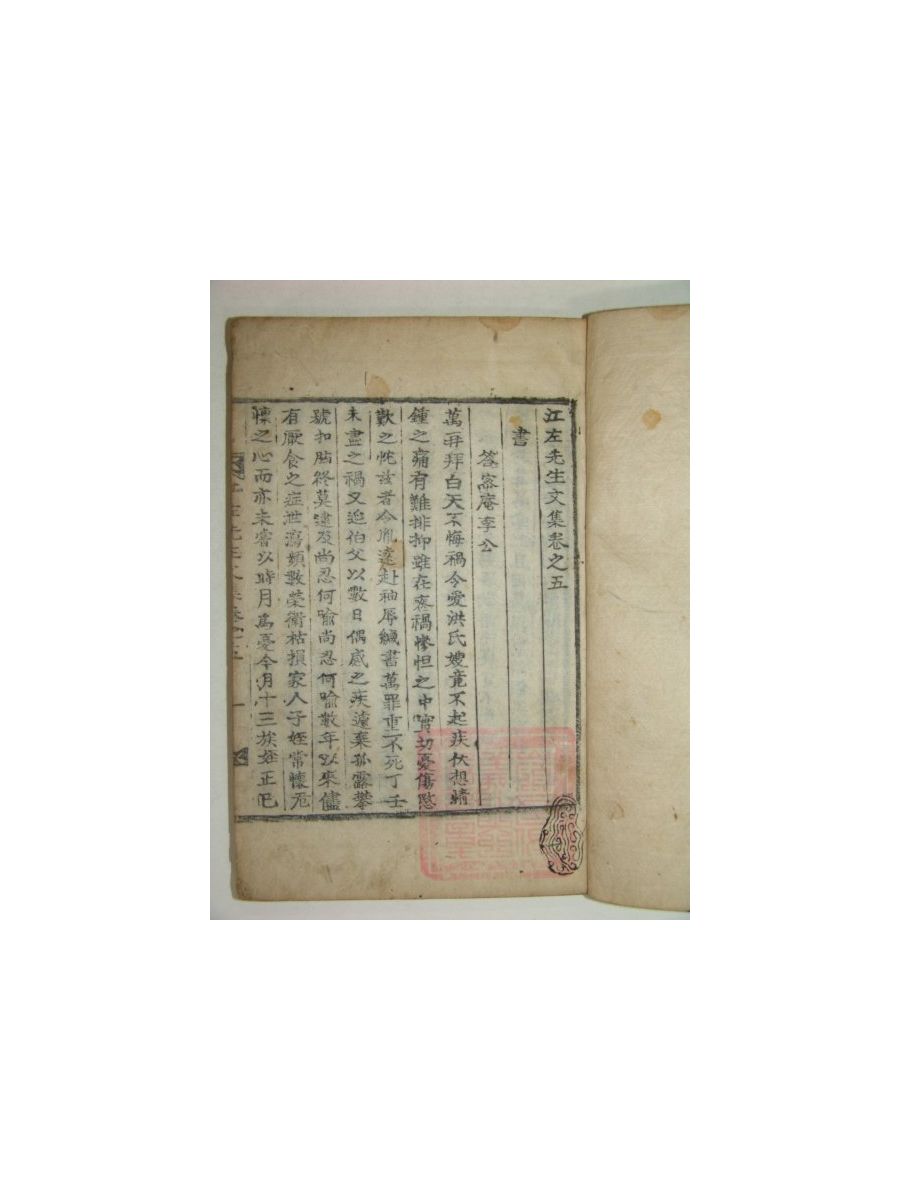 江左先生文集卷之五
書
答密庵李公
萬再拜白天不悔禍令愛洪氏嫂竟不起疾伏想情
鍾之痛有難排抑雖在喪禍慘怛之中實切憂傷愍
歎之忱玆者令胤遠赴袖辱緘書萬罪重不死丁壬
未盡之禍又迎伯父以數日偶感之疾遽棄孤露攀
號扣䏶終莫逮及尚忍何喻尚忍何喻數年以來儘
有厭食之症泄瀉頻數榮衛枯損家人子姪常懷危
懍之心而亦未嘗以時月爲憂今月十三族姪正已